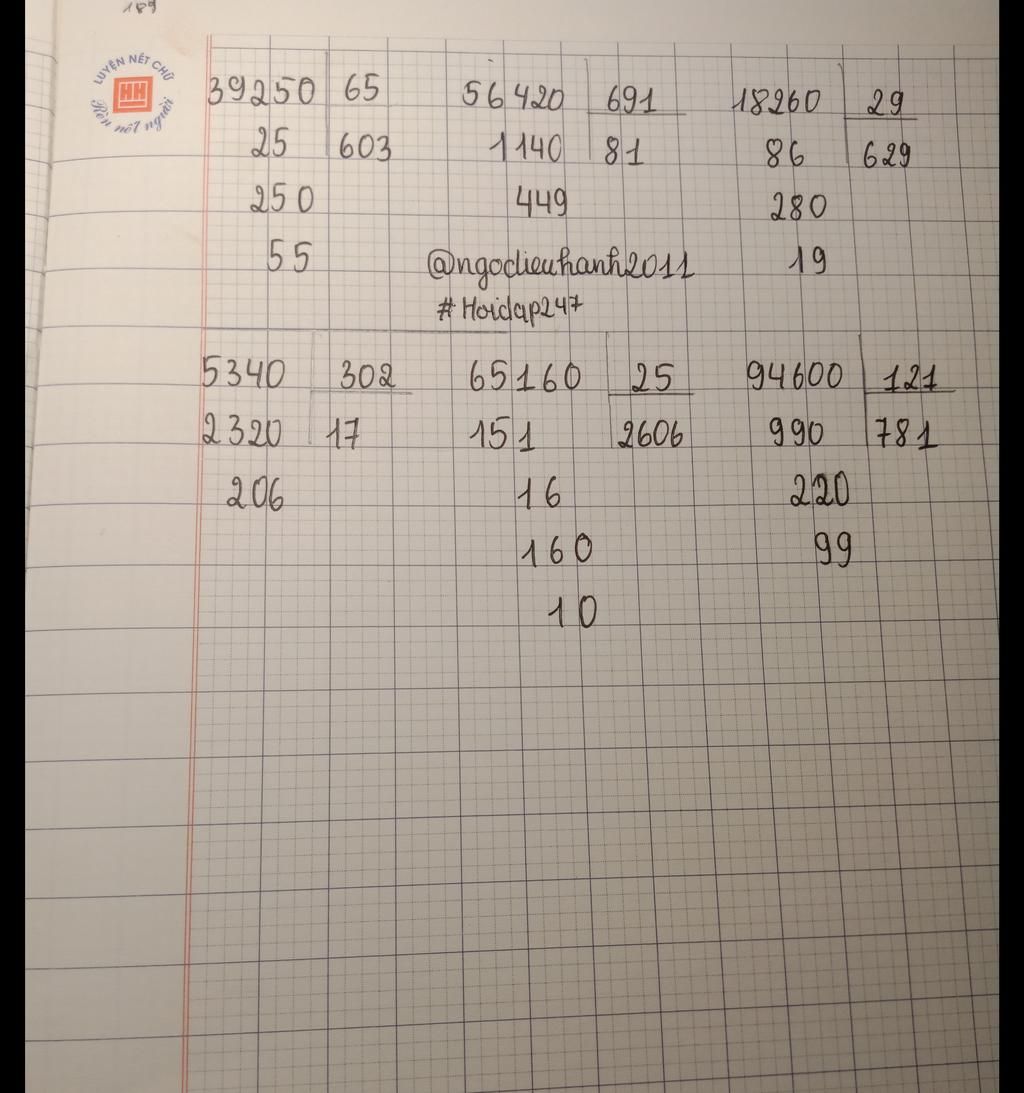 189
LUYỆN NÉT CHỮ
HH
Rèn nết người
39250 65 56420 691 18260 29
25 603 1140 81 86 629
250 449 280
55 @ngoclieuhanh2011 19
#Hoidap247
5340 302 65160 25 94600 121
2320 17 151 2606 990 781
206 16 220
160 99
10